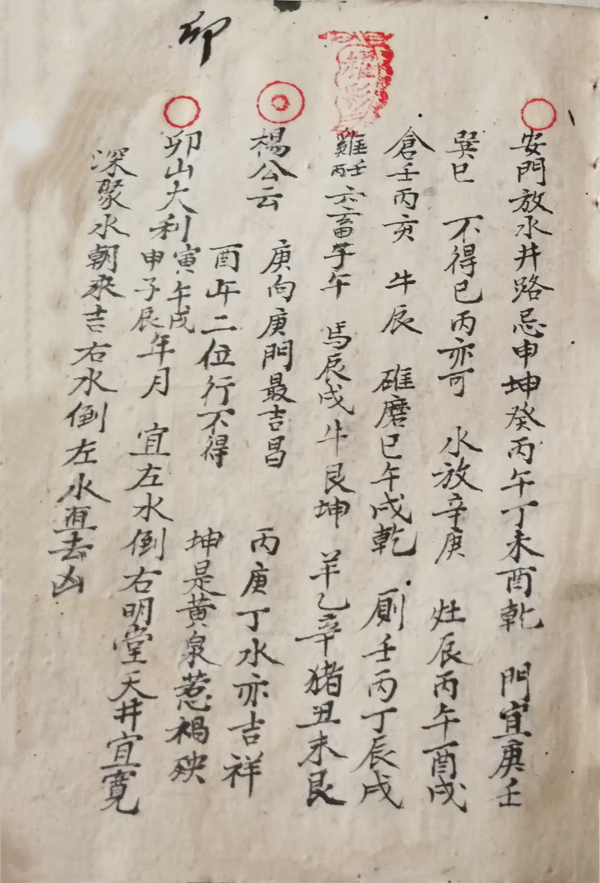 卯
安門放水井路忌申坤癸丙午丁未酉乾 門宜庚壬
巽巳 不得已丙亦可 水放辛庚 灶辰丙午酉戌
倉壬丙亥 牛辰 碓磨巳午戌乾 厠壬丙丁辰戌
雞壬丙 六畜子午 馬辰戌 牛艮坤 羊乙辛 猪丑未艮
楊公云 庚向庚門最吉昌 丙庚丁水亦吉祥
酉午二位行不得 坤是黄泉惹禍殃
卯山大利寅午戌申子辰年月 宜左水倒右明堂天井宜寬
深聚水朝來吉右水倒左水直去凶